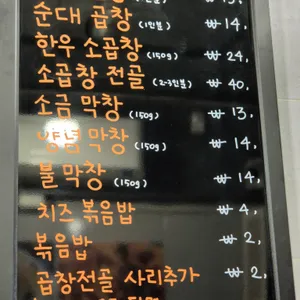 순대 곱창 (1인분) ₩ 14,
한우 소곱창 (150g) ₩ 24,
소곱창 전골 (2-3인분) ₩ 40,
소금 막창 (150g) ₩ 13,
양념 막창 (150g) ₩ 14,
불 막창 (150g) ₩ 14,
치즈 볶음밥 ₩ 4,
볶음밥 ₩ 2,
곱창전골 사리추가 ₩ 2,